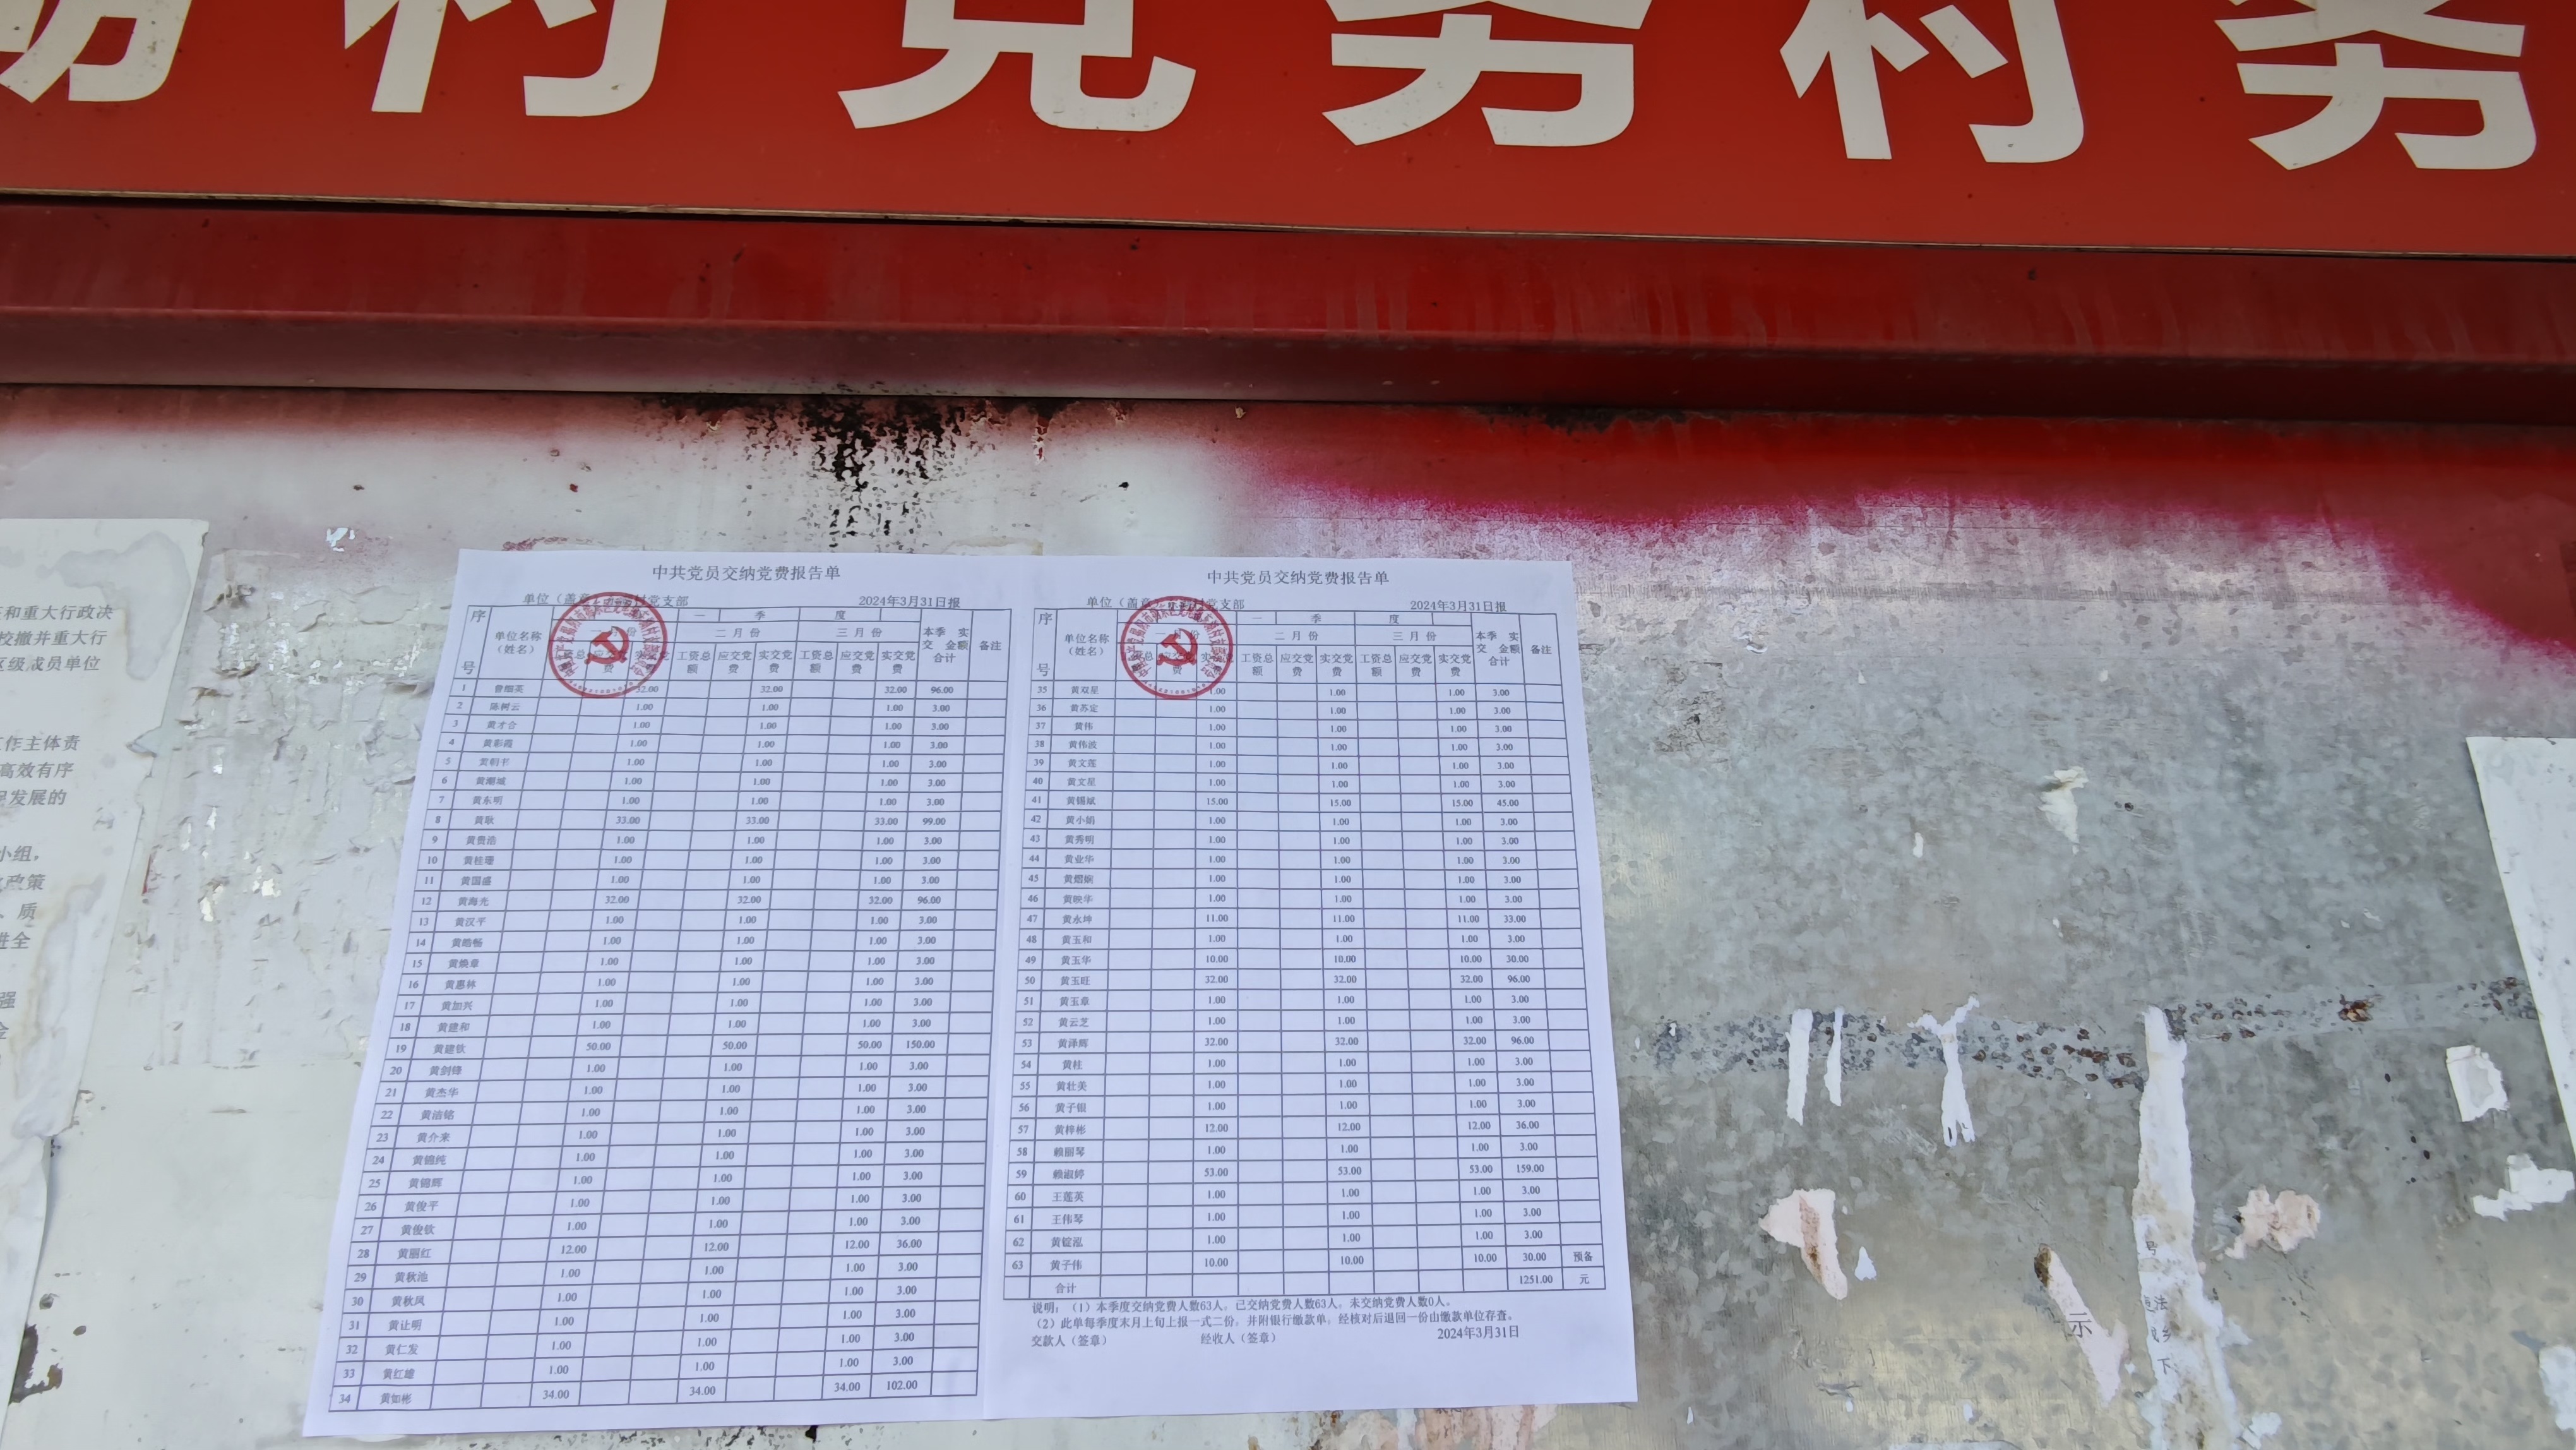 村党务村务
和重大行政决
校撤并重大行
区级成员单位
作主体责
高效有序
发展的
小组,
政策
、质
进全
强
中共党员交纳党费报告单
2024年3月31日报
序号 单位名称（姓名） 一 季 度 本季 实交 金额合计 备注
二月份 三月份
工资总额 应交党费 实交党费 工资总额 应交党费 实交党费
1 曾细英 32.00 32.00 32.00 96.00
2 陈树云 1.00 1.00 1.00 3.00
3 黄才合 1.00 1.00 1.00 3.00
4 黄彩霞 1.00 1.00 1.00 3.00
5 黄朝书 1.00 1.00 1.00 3.00
6 黄潮城 1.00 1.00 1.00 3.00
7 黄东明 1.00 1.00 1.00 3.00
8 黄耿 33.00 33.00 33.00 99.00
9 黄贵浩 1.00 1.00 1.00 3.00
10 黄桂珊 1.00 1.00 1.00 3.00
11 黄国盛 1.00 1.00 1.00 3.00
12 黄海光 32.00 32.00 32.00 96.00
13 黄汉平 1.00 1.00 1.00 3.00
14 黄皓畅 1.00 1.00 1.00 3.00
15 黄焕章 1.00 1.00 1.00 3.00
16 黄惠林 1.00 1.00 1.00 3.00
17 黄加兴 1.00 1.00 1.00 3.00
18 黄建和 1.00 1.00 1.00 3.00
19 黄建钦 50.00 50.00 50.00 150.00
20 黄剑锋 1.00 1.00 1.00 3.00
21 黄杰华 1.00 1.00 1.00 3.00
22 黄洁铭 1.00 1.00 1.00 3.00
23 黄介来 1.00 1.00 1.00 3.00
24 黄锦纯 1.00 1.00 1.00 3.00
25 黄锦辉 1.00 1.00 1.00 3.00
26 黄俊平 1.00 1.00 1.00 3.00
27 黄俊钦 1.00 1.00 1.00 3.00
28 黄丽红 12.00 12.00 12.00 36.00
29 黄秋池 1.00 1.00 1.00 3.00
30 黄秋凤 1.00 1.00 1.00 3.00
31 黄让明 1.00 1.00 1.00 3.00
32 黄仁发 1.00 1.00 1.00 3.00
33 黄红雄 1.00 1.00 1.00 3.00
34 黄如彬 34.00 34.00 34.00 102.00
中共党员交纳党费报告单
2024年3月31日报
序号 单位名称（姓名） 一 季 度 本季 实交 金额合计 备注
二月份 三月份
工资总额 应交党费 实交党费 工资总额 应交党费 实交党费
35 黄双星 1.00 1.00 1.00 3.00
36 黄苏定 1.00 1.00 1.00 3.00
37 黄伟 1.00 1.00 1.00 3.00
38 黄伟波 1.00 1.00 1.00 3.00
39 黄文莲 1.00 1.00 1.00 3.00
40 黄文星 1.00 1.00 1.00 3.00
41 黄锡斌 15.00 15.00 15.00 45.00
42 黄小娟 1.00 1.00 1.00 3.00
43 黄秀明 1.00 1.00 1.00 3.00
44 黄业华 1.00 1.00 1.00 3.00
45 黄熠娴 1.00 1.00 1.00 3.00
46 黄映华 1.00 1.00 1.00 3.00
47 黄永坤 11.00 11.00 11.00 33.00
48 黄玉和 1.00 1.00 1.00 3.00
49 黄玉华 10.00 10.00 10.00 30.00
50 黄玉旺 32.00 32.00 32.00 96.00
51 黄玉章 1.00 1.00 1.00 3.00
52 黄云芝 1.00 1.00 1.00 3.00
53 黄泽辉 32.00 32.00 32.00 96.00
54 黄柱 1.00 1.00 1.00 3.00
55 黄壮美 1.00 1.00 1.00 3.00
56 黄子银 1.00 1.00 1.00 3.00
57 黄梓彬 12.00 12.00 12.00 36.00
58 赖丽琴 1.00 1.00 1.00 3.00
59 赖淑婷 53.00 53.00 53.00 159.00
60 王莲英 1.00 1.00 1.00 3.00
61 王伟琴 1.00 1.00 1.00 3.00
62 黄锭泓 1.00 1.00 1.00 3.00
63 黄子伟 10.00 10.00 10.00 30.00 预备
合计 1251.00 元
说明：（1）本季度交纳党费人数63人，已交纳党费人数63人，未交纳党费人数0人。
（2）此单每季度末月上旬上报一式二份，并附银行缴款单，经核对后退回一份由缴款单位存查。
交款人（签章） 经收人（签章） 2024年3月31日
示